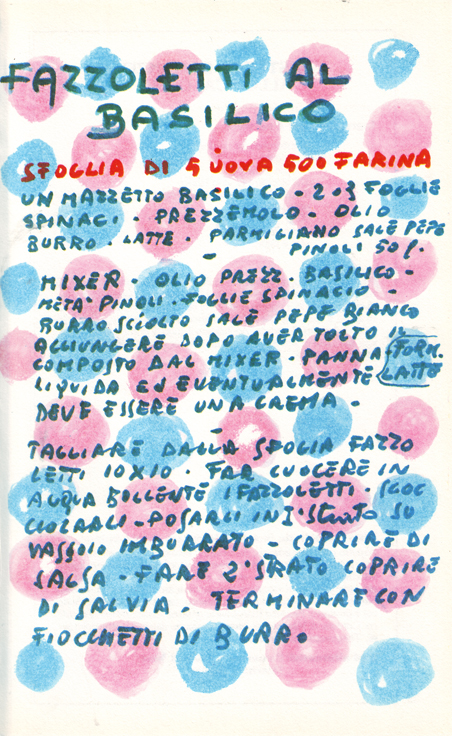 FAZZOLETTI AL
BASILICO
SFOGLIA DI 5 UOVA 500 FARINA
UN MAZZETTO BASILICO - 2 o 3 FOGLIE
SPINACI - PREZZEMOLO - OLIO
BURRO - LATTE - PARMIGIANO SALE PEPE
PINOLI 50 g.
MIXER - OLIO PREZZ - BASILICO -
METÀ PINOLI - FOGLIE SPINACIO -
BURRO SCIOLTO SALE PEPE BIANCO
AGGIUNGERE DOPO AVER TOLTO IL
COMPOSTO DAL MIXER - PANNA
LIQUIDA Ed EVENTUALMENTE LATTE
DEVE ESSERE UNA CREMA -
TAGLIARE DALLA SFOGLIA FAZZO
LETTI 10X10 - FAR CUOCERE IN
ACQUA BOLLENTE I FAZZOLETTI - SGOC
CIOLARLI - POSARLI IN 1° Strato SU
VASSOIO IMBURRATO - COPRIRE DI
SALSA - FARE 2° STRATO COPRIRE
DI SALVIA - TERMINARE CON
FIOCCHETTI DI BURRO